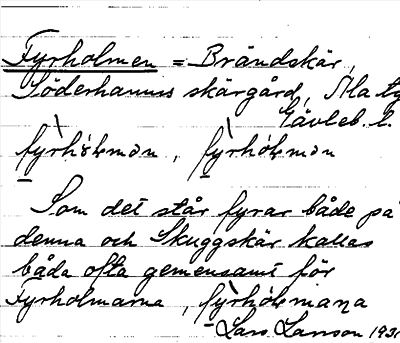 Fyrholmen = Brändskär,
Söderhamns skärgård,
Gävleb. l.
fyrhòlmən, fyrhòlmən
Som det står fyrar både på
denna och Skuggskär kallas
båda ofta gemensamt för
Fyrholmarna, fyrhòlmaṇa
Lars Larsson 193